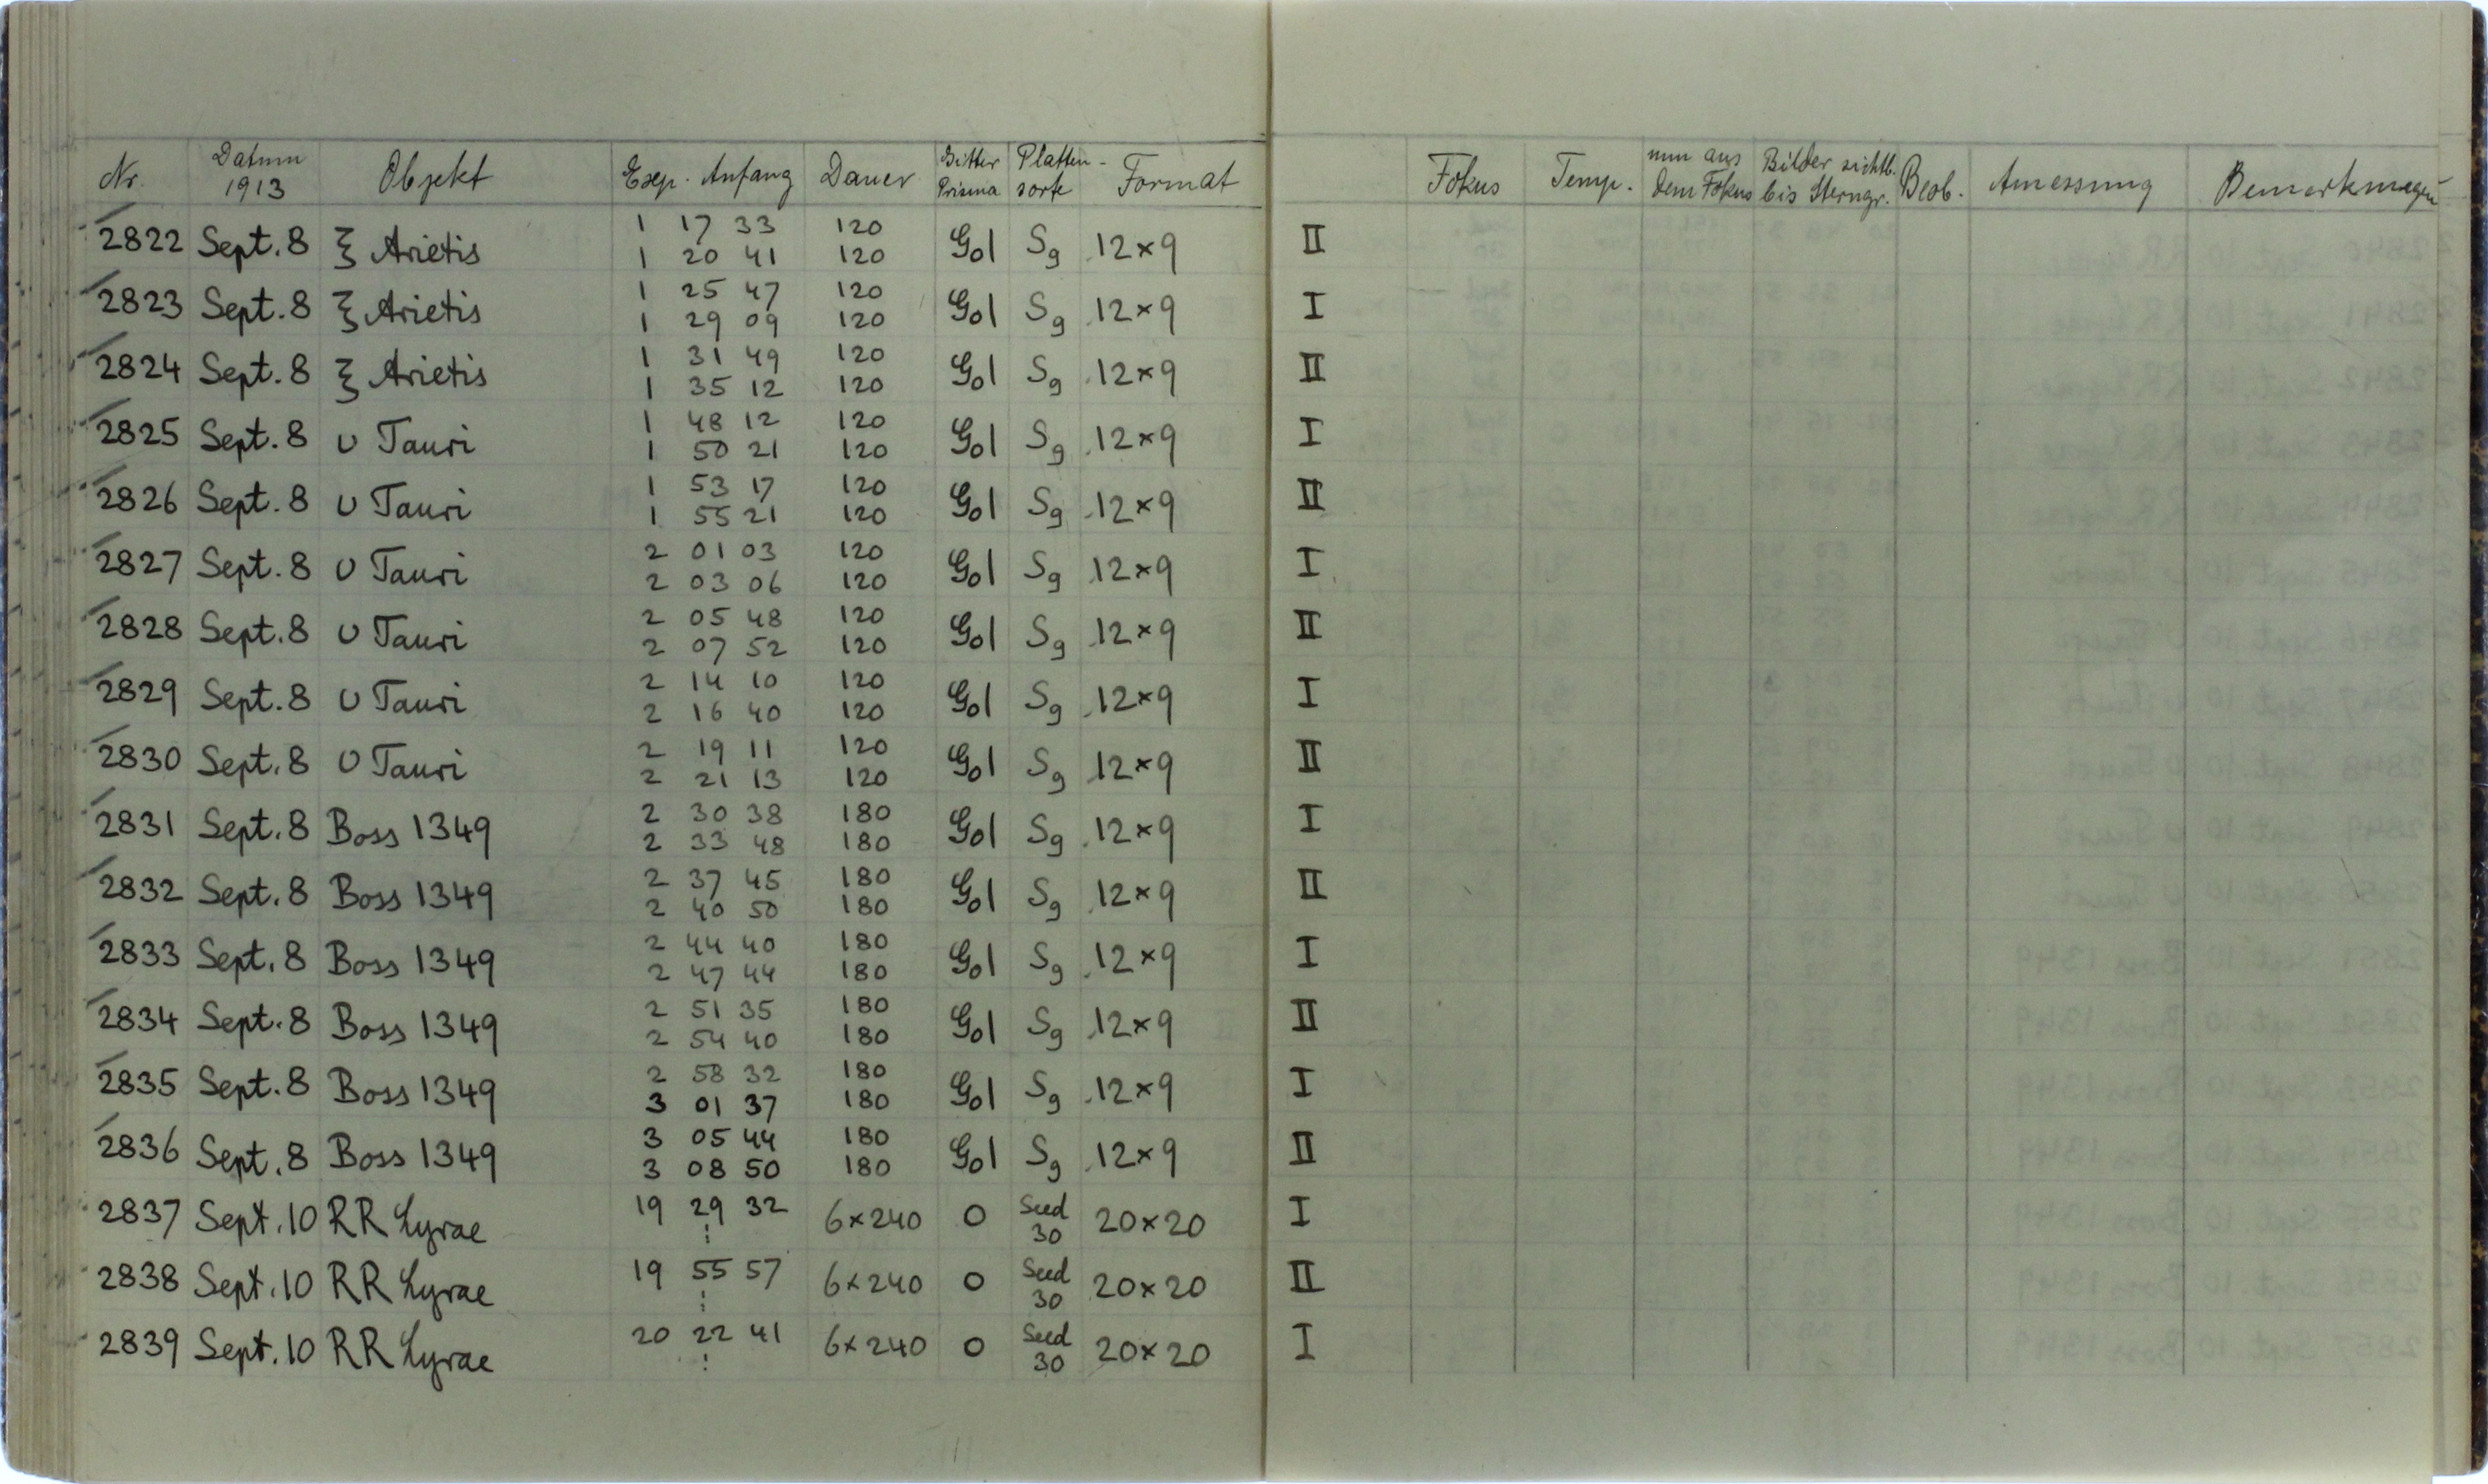 Nr. Datum 1913 Objekt Exp. Anfang Dauer Gitter Prisma Platten-sorte Format Fokus Temp. mm aus dem Fokus Bilder sichtb. bis Sterngr. Beob. Amessung Bemerkungen
2822 Sept. 8 ξ Arietis 1 17 33 120 Gol Sg 12×9 II
1 20 41 120
2823 Sept. 8 ξ Arietis 1 25 47 120 Gol Sg 12×9 I
1 29 09 120
2824 Sept. 8 ξ Arietis 1 31 49 120 Gol Sg 12×9 II
1 35 12 120
2825 Sept. 8 υ Tauri 1 48 12 120 Gol Sg 12×9 I
1 50 21 120
2826 Sept. 8 υ Tauri 1 53 17 120 Gol Sg 12×9 II
1 55 21 120
2827 Sept. 8 υ Tauri 2 01 03 120 Gol Sg 12×9 I
2 03 06 120
2828 Sept. 8 υ Tauri 2 05 48 120 Gol Sg 12×9 II
2 07 52 120
2829 Sept. 8 υ Tauri 2 14 10 120 Gol Sg 12×9 I
2 16 40 120
2830 Sept. 8 υ Tauri 2 19 11 120 Gol Sg 12×9 II
2 21 13 120
2831 Sept. 8 Boss 1349 2 30 38 180 Gol Sg 12×9 I
2 33 48 180
2832 Sept. 8 Boss 1349 2 37 45 180 Gol Sg 12×9 II
2 40 50 180
2833 Sept. 8 Boss 1349 2 44 40 180 Gol Sg 12×9 I
2 47 44 180
2834 Sept. 8 Boss 1349 2 51 35 180 Gol Sg 12×9 II
2 54 40 180
2835 Sept. 8 Boss 1349 2 58 32 180 Gol Sg 12×9 I
3 01 37 180
2836 Sept. 8 Boss 1349 3 05 44 180 Gol Sg 12×9 II
3 08 50 180
2837 Sept. 10 RR Lyrae 19 29 32 6×240 0 Seed 30 20×20 I
⋮
2838 Sept. 10 RR Lyrae 19 55 57 6×240 0 Seed 30 20×20 II
⋮
2839 Sept. 10 RR Lyrae 20 22 41 6×240 0 Seed 30 20×20 I
⋮